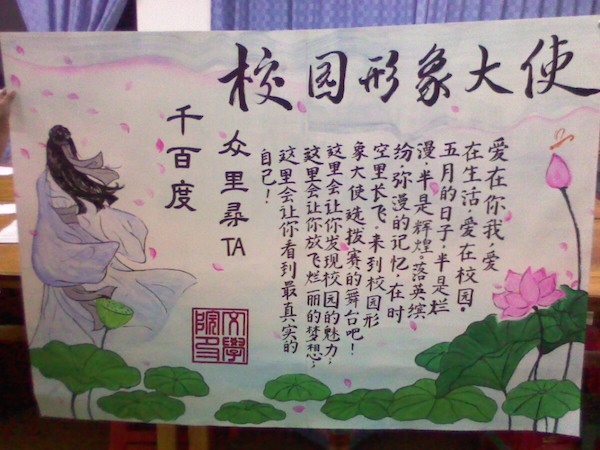 校园形象大使
爱在你我,爱
在生活,爱在校园。
五月的日子,半是烂
漫,半是辉煌。落英缤
纷,弥漫的记忆,在时
空里长飞。来到校园形
象大使选拨赛的舞台吧!
这里会让你发现校园的魅力;
这里会让你放飞烂丽的梦想;
这里会让你看到最真实的
自己!
众里尋TA
千百度
文學
院印